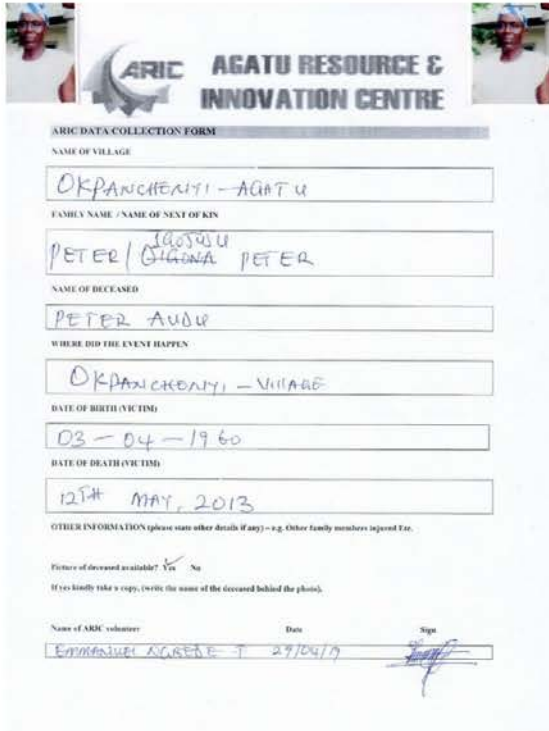 ARIC AGATU RESOURCE &
INNOVATION CENTRE
ARIC DATA COLLECTION FORM
NAME OF VILLAGE
OKPANCHENYI - AGATU
FAMILY NAME / NAME OF NEXT OF KIN
PETER / PETER
NAME OF DECEASED
PETER AUDU
WHERE DID THE EVENT HAPPEN
OKPANCHENYI - VILLAGE
DATE OF BIRTH (VICTIM)
03-04-1960
DATE OF DEATH (VICTIM)
12TH MAY, 2013
OTHER INFORMATION (please state other details if any) – e.g. Other family members injured Etc.
Picture of deceased available? Yes No
If yes kindly take a copy, (write the name of the deceased behind the photo).
Name of ARIC volunteer Date Sign
EMMANUEL T 29/04/19